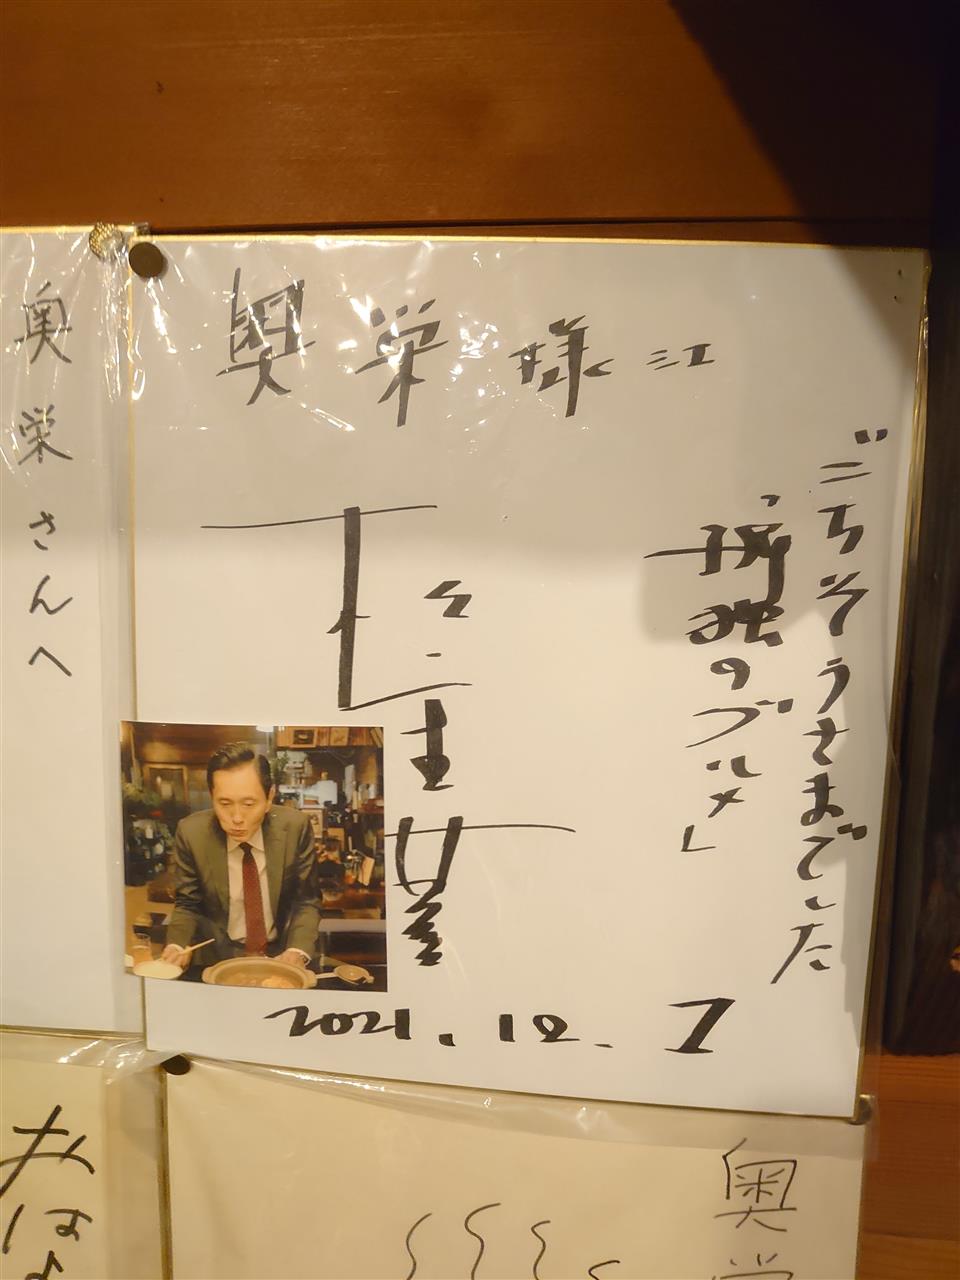 奥栄様江
ごちそうさまでした
「孤独のグルメ」
松重豊
2021.12.7
奥栄さんへ
奥